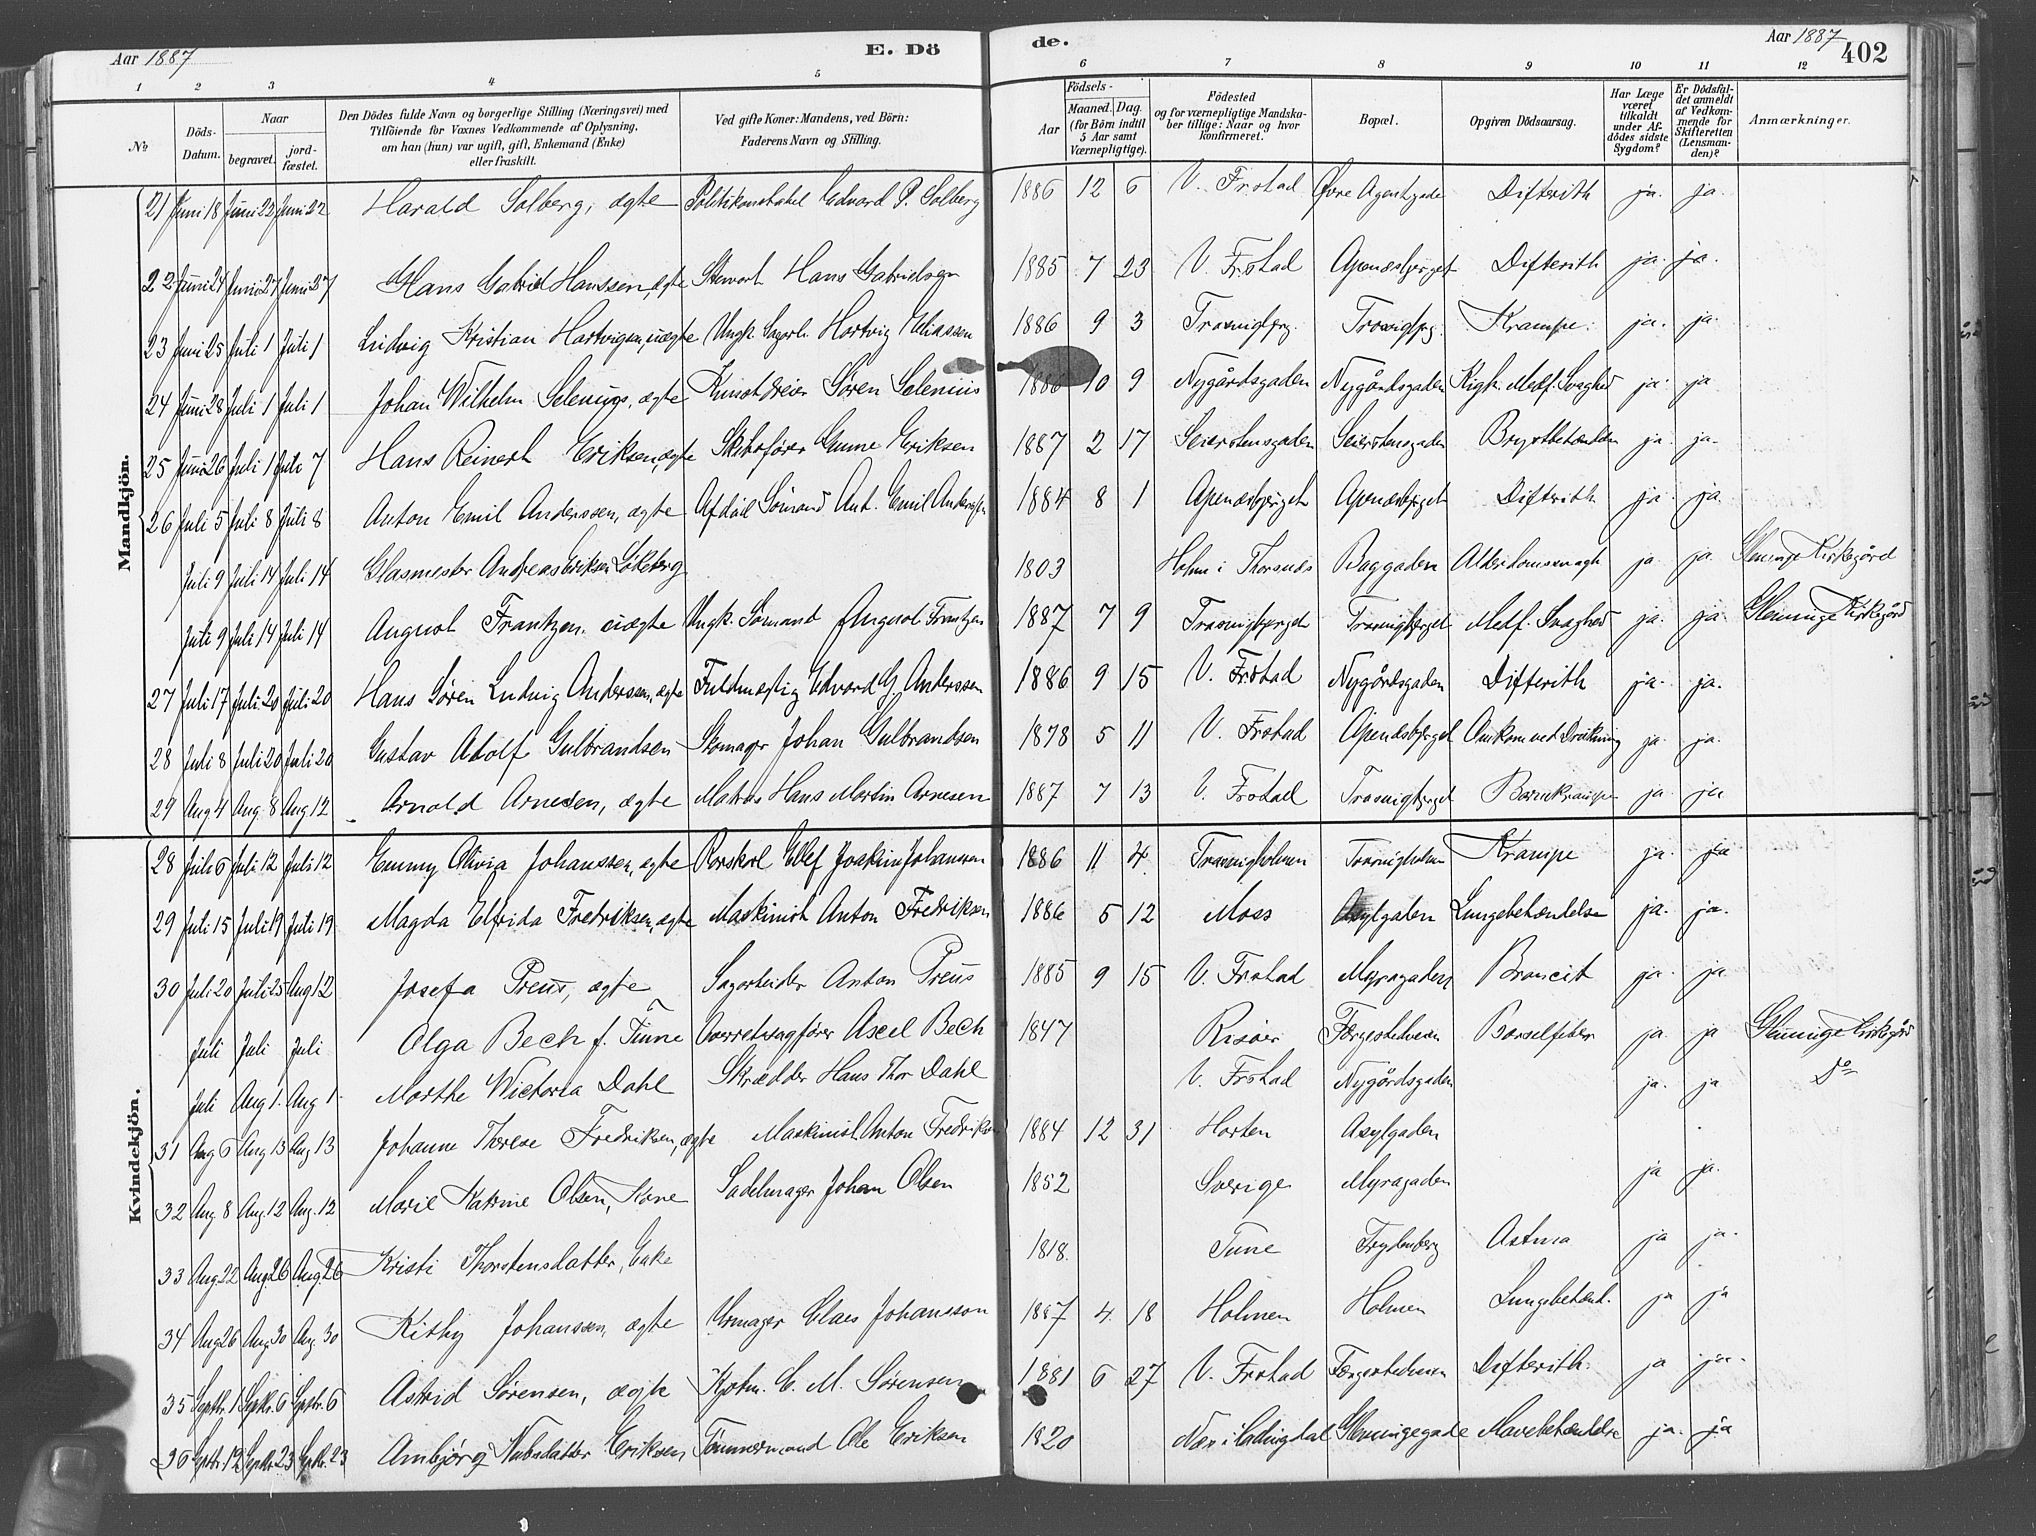 Aar 1887 E. Dö de. Aar 1887 402
1 2 3 4 5 6 7 8 9 10 11 12
№ Döds-Datum. Naar begravet. jord-fæstet. Den Dödes fulde Navn og borgerlige Stilling (Næringsvei) med Tilföiende for Voxnes Vedkommende af Oplysning, om han (hun) var ugift, gift, Enkemand (Enke) eller fraskilt. Ved gifte Koner: Mandens, ved Börn: Faderens Navn og Stilling. Aar Födsels- Maaned. Dag. (for Börn indtil 5 Aar samt Værnepligtige). Födested og for værnepligtige Mandskaber tillige: Naar og hvor konfirmeret. Bopæl. Opgiven Dödsaarsag. Har Læge været tilkaldt under Afdödes sidste Sygdom? Er Dödsfaldet anmeldt af Vedkommende for Skifteretten (Lensmanden)? Anmærkninger.
Mandkjön.
21 Juni 18 Juni 22 Juni 22 Harald Solberg, ægte Politikonstabel Edvard P. Solberg 1886 12 6 V. Frstad Øvre Agentgade Difterith ja. ja.
22 Juni 24 Juni 27 Juni 27 Hans Gabriel Hanssen, ægte Stewart Hans Gabrielsen 1885 7 23 V. Frstad Apenæsbjerget Difterith ja. ja.
23 Juni 25 Juli 1 Juli 1 Ludvig Kristian Hartvigsen, uægte Ungk. Sagarb. Hartvig Eliassen 1886 9 3 Trosvigbjrg. Trosvigbjrg. Krampe. ja. ja.
24 Juni 28 Juli 1 Juli 1 Johan Wilhelm Selenius, ægte Kunstdreier Søren Selenius 1886 10 9 Nygårdsgaden Nygårdsgaden Kigh. Medf. Svaghed ja. ja
25 Juni 26 Juli 1 Juli 7 Hans Reinert Eriksen, ægte Skibsfører Gunne Eriksen 1887 2 17 Seierstensgaden Seierstensgaden Brystbetændelse ja. ja.
26 Juli 5 Juli 8 Juli 8 Anton Emil Anderssen, ægte Afdød Sømand Ant. Emil Anderssen 1884 8 1 Apenæsbjerget Apenæsbjerget Difterith ja. ja
Juli 9 Juli 14 Juli 14 Glasmester Andreas Eriksen Lökeberg 1803 Holm i Thorsnæs Baggaden Alderdomssvagh ja. ja. Glemminge Kirkegård
Juli 9 Juli 14 Juli 14 August Frantzen, uægte Ungk. Sømand August Frantzen 1887 7 9 Trosvigbjerget Trosvigbjerget Medf. Svaghed ja. ja Glemminge Kirkegård
27 Juli 17 Juli 20 Juli 20 Hans Søren Ludvig Andersen, ægte Fuldmægtig Edvard G. Anderssen 1886 9 15 V. Frstad Nygårdsgaden Difterith ja. ja.
28 Juli 8 Juli 20 Juli 20 Gustav Adolf Gulbrandsen Skomager Johan Gulbrandsen 1878 5 11 V. Frstad Apenæsbjerget Omkom ved Drukning ja. ja.
29 Aug 4 Aug. 8 Aug 12 Arnold Arnesen, ægte Matros Hans Martin Arnesen 1887 7 13 V. Frstad Trosvigbjerget Barnekrampe ja ja
Kvindekjön.
28 Juli 6 Juli 12 Juli 12 Emmy Olivia Johanssen, ægte Rorskarl Ellef Joakim Johanssen 1886 11 4. Trosvigholmen Trosvigholmen Krampe ja. ja
29 Juli 15 Juli 19 Juli 19 Magda Elfrida Fredriksen, ægte Maskinist Anton Fredriksen 1886 5 12 Moss Asylgaden Lungebetændelse ja. ja.
30 Juli 20 Juli 25 Aug 12 Josefa Preus, ægte Sagarbeider Anton Preus 1885 9 15 V. Frstad Myragaden Broncit ja. ja
Juli Juli Juli Olga Bech f. Finne Overretssagfører Axel Bech 1847 Risöer Færgestedsveien Barselfeber ja ja Glemminge Kirkegård
Juli Aug 1. Aug 1. Marthe Wictoria Dahl Skrædder Hans Thor Dahl V. Frstad Nygårdsgaden ja. ja Do
31 Aug 6 Aug 13 Aug 13 Johanne Therese Fredriksen, ægte Maskinist Anton Fredriksen 1884 12 31 Horten Asylgaden
32 Aug 8 Aug. 12 Aug. 12 Marie Katrine Olsen, Kone Sadelmager Johan Olsen 1852 Sverige Myragaden ja ja.
33 Aug 22 Aug. 26 Aug. 26 Kristi Thorstensdatter, Enke 1818. Tune Frydenberg Astma ja ja.
34 Aug 26 Aug 30 Aug. 30 Kitty Johanssen, ægte Urmager Claes Johansson 1887 4. 18 Holmen Holmen Lungebetænd. ja ja
35 Septbr. 1 Septbr. 6 Septbr. 6 Astrid Sørensen, ægte Kjøbm. C. M. Sørensen 1881 6 27 V. Frstad Færgestedsveien Difterith. ja ja.
36 Septbr. 19 Septbr. 23 Septbr. 23 Ambjørg Eriksen, Tømmermand Ole Eriksen 1820 Næs i Hallingdal Glemmingegade Mavebetændelse ja. ja